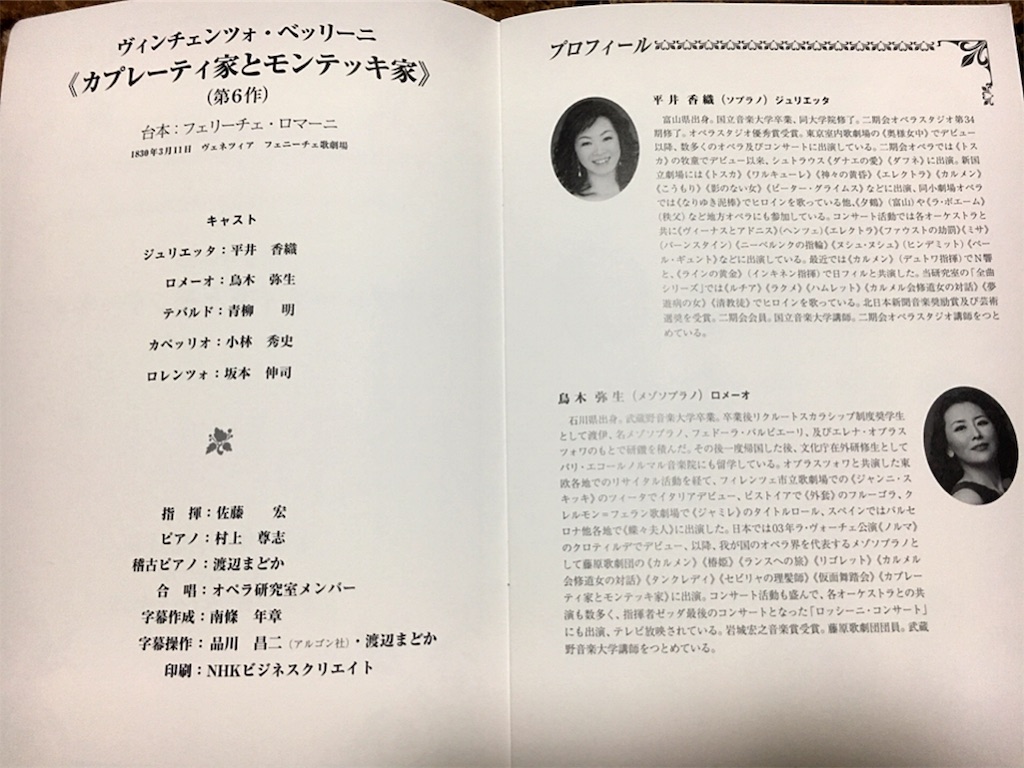 ヴィンチェンツォ・ベッリーニ
《カプレーティ家とモンテッキ家》
(第6作)
台本：フェリーチェ・ロマーニ
1830年3月11日　ヴェネツィア　フェニーチェ歌劇場
キャスト
ジュリエッタ：平井　香織
ロメーオ：鳥木　弥生
テバルド：青柳　明
カペッリオ：小林　秀史
ロレンツォ：坂本　伸司
指　揮：佐藤　宏
ピアノ：村上　尊志
稽古ピアノ：渡辺まどか
合　唱：オペラ研究室メンバー
字幕作成：南條　年章
字幕操作：品川　昌二（アルゴン社）・渡辺まどか
印刷：NHKビジネスクリエイト
プロフィール
平井 香織（ソプラノ）ジュリエッタ
富山県出身。国立音楽大学卒業、同大学院修了。二期会オペラスタジオ第34
期修了。オペラスタジオ優秀賞受賞。東京室内歌劇場の《奥様女中》でデビュー
以降、数多くのオペラ及びコンサートに出演している。二期会オペラでは《トス
カ》の牧童でデビュー以来、シュトラウス《ダナエの愛》《ダフネ》に出演。新国
立劇場には《トスカ》《ワルキューレ》《神々の黄昏》《エレクトラ》《カルメン》
《こうもり》《影のない女》《ピーター・グライムス》などに出演、同小劇場オペラ
では《なりゆき泥棒》でヒロインを歌っている他、《夕鶴》（富山）や《ラ・ボエーム》
（秩父）など地方オペラにも参加している。コンサート活動では各オーケストラと
共に《ヴィーナスとアドニス》（ヘンツェ）《エレクトラ》《ファウストの劫罰》《ミサ》
（バーンスタイン）《ニーベルンクの指輪》《ヌシュ・ヌシュ》（ヒンデミット）《ペー
ル・ギュント》などに出演している。最近では《カルメン》（デュトワ指揮）でN響
と、《ラインの黄金》（インキネン指揮）で日フィルと共演した。当研究室の「全曲
シリーズ」では《ルチア》《ラクメ》《ハムレット》《カルメル会修道女の対話》《夢
遊病の女》《清教徒》でヒロインを歌っている。北日本新聞音楽奨励賞及び芸術
選奨を受賞。二期会会員。国立音楽大学講師。二期会オペラスタジオ講師をつと
めている。
鳥木 弥生（メゾソプラノ）ロメーオ
石川県出身。武蔵野音楽大学卒業。卒業後リクルートスカラシップ制度奨学生
として渡伊、名メゾソプラノ、フェドーラ・バルビエーリ、及びエレナ・オブラス
ツォワのもとで研鑽を積んだ。その後一度帰国した後、文化庁在外研修生として
パリ・エコールノルマル音楽院にも留学している。オブラスツォワと共演した東
欧各地でのリサイタル活動を経て、フィレンツェ市立歌劇場での《ジャンニ・ス
キッキ》のツィータでイタリアデビュー、ピストイアで《外套》のフルーゴラ、ク
レルモン＝フェラン歌劇場で《ジャミレ》のタイトルロール、スペインではバルセ
ロナ他各地で《蝶々夫人》に出演した。日本では03年ラ・ヴォーチェ公演《ノルマ》
のクロティルデでデビュー、以降、我が国のオペラ界を代表するメゾソプラノと
して藤原歌劇団の《カルメン》《椿姫》《ランスへの旅》《リゴレット》《カルメル
会修道女の対話》《タンクレディ》《セビリャの理髪師》《仮面舞踏会》《カプレー
ティ家とモンテッキ家》に出演。コンサート活動も盛んで、各オーケストラとの共
演も数多く、指揮者ゼッダ最後のコンサートとなった「ロッシーニ・コンサート」
にも出演、テレビ放映されている。岩城宏之音楽賞受賞。藤原歌劇団団員。武蔵
野音楽大学講師をつとめている。